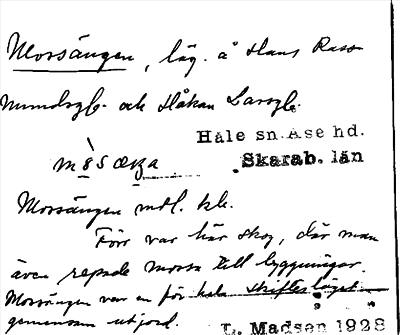 Morsängen, läg. å Hans Rass-
mundsgb. och Håkan Larsgb.
Håle sn. Åse hd.
Skarab. län
Morsängen mdl. kh.
Förr var här skog, där man
även repade mossa till byggningar.
Morsängen var en för hela skifteslaget
gemensam utjord.
L. Madsen 1928